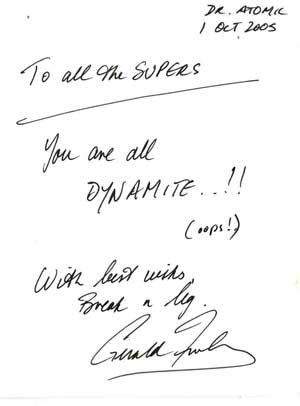 DR. ATOMIC
1 OCT 2005
To all the SUPERS
You are all
DYNAMITE...!!
(oops!)
With best wishes,
Break a leg.
Gerald